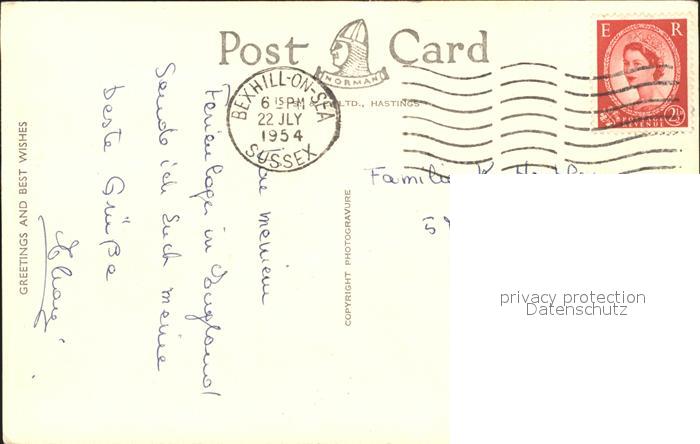 Post Card
NORMAN
LTD., HASTINGS
E R
POSTAGE
REVENUE
2½
BEXHILL-ON-SEA
6 15 PM
22 JLY
1954
SUSSEX
GREETINGS AND BEST WISHES
COPYRIGHT PHOTOGRAVURE
meinem
Ferienlager in England
sende ich Euch meine
beste Grüße
Familie
privacy protection
Datenschutz